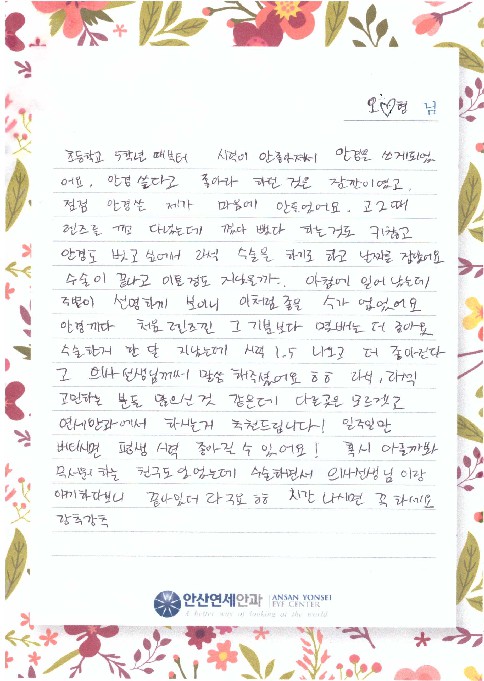 오♡형 님
초등학교 5학년 때부터 시력이 안좋아져서 안경을 쓰게되었
어요. 안경 쓴다고 좋아라 하던 것은 잠깐이였고,
점점 안경쓴 제가 마음에 안들었어요. 고2때
렌즈를 끼고 다녔는데 꼈다 뺐다 하는것도 귀찮고
안경도 벗고 싶어서 라섹 수술을 하기로 하고 날짜를 잡았어요
수술이 끝나고 이틀정도 지났을까.. 아침에 일어 났는데
주변이 선명하게 보이니 이처럼 좋을 수가 없었어요
안경끼다 처음 렌즈낀 그 기분보다 몇배는 더 좋아요
수술한지 한 달 지났는데 시력 1.5 나오고 더 좋아진다
고 의사선생님께서 말씀 해주셨어요 ㅎㅎ 라섹, 라식
고민하는 분들 많으신 것 같은데 다른곳은 모르겠고
연세안과에서 하시는거 추천드립니다! 일주일만
버티시면 평생 시력 좋아질 수 있어요! 혹시 아플까봐
무서워 하는 친구도 있었는데 수술하면서 의사선생님 이랑
얘기하다보니 끝나있더라구요 ㅎㅎ 시간 나시면 꼭 하세요
강추강추
안산연세안과 ANSAN YONSEI EYE CENTER
A better way of looking at the world